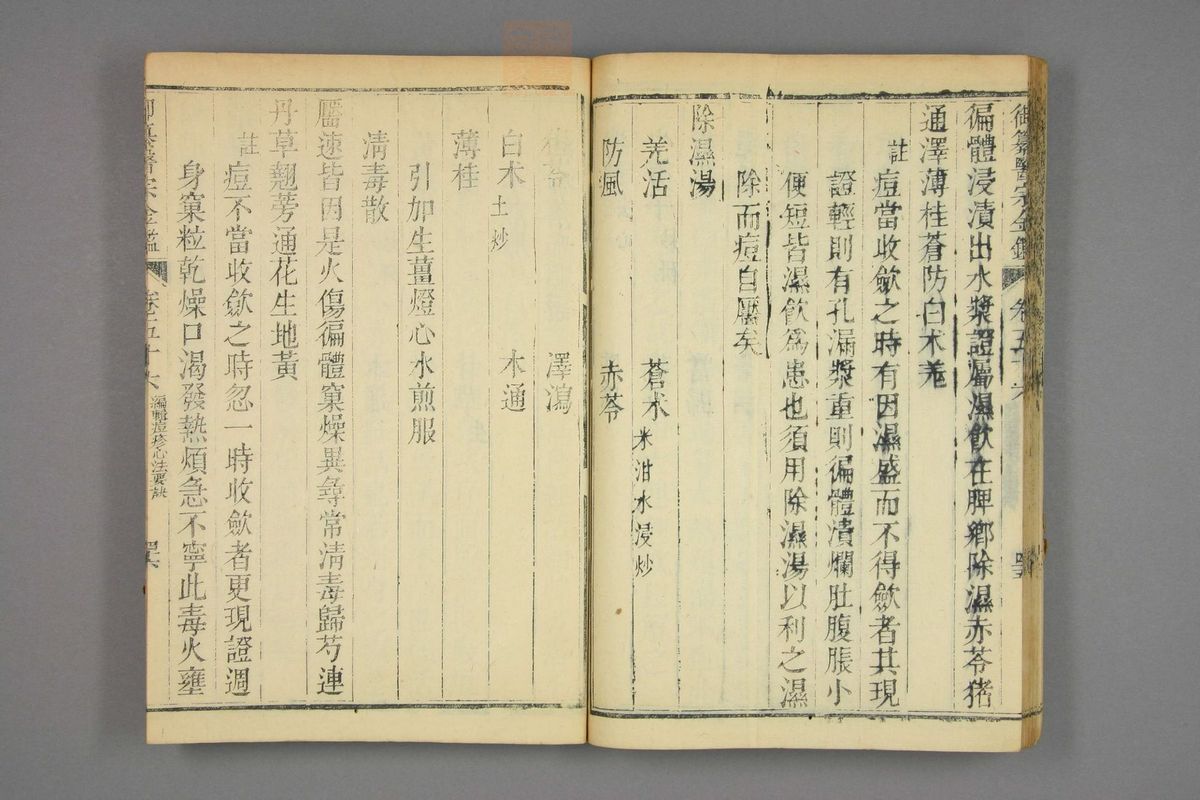 御纂醫宗金鑑 卷五十六
徧體浸漬出水漿證屬濕飲在脾鄉除濕赤苓猪
通澤薄桂蒼防白朮羌
註 痘當收斂之時有因濕盛而不得斂者其現
證輕則有孔漏漿重則徧體潰爛肚腹脹小
便短皆濕飲爲患也須用除濕湯以利之濕
除而痘自靨矣
除濕湯
羌活 蒼朮米泔水浸炒
防風 赤苓
澤瀉
白朮土炒 木通
薄桂
引加生薑燈心水煎服
清毒散
靨速皆因是火傷徧體窠燥異尋常清毒歸芍連
丹草翹蒡通花生地黃
註 痘不當收斂之時忽一時收斂者更現證遍
身窠粒乾燥口渴發熱煩急不寧此毒火壅
醫宗金鑑 卷五十六 編輯痘疹心法要訣